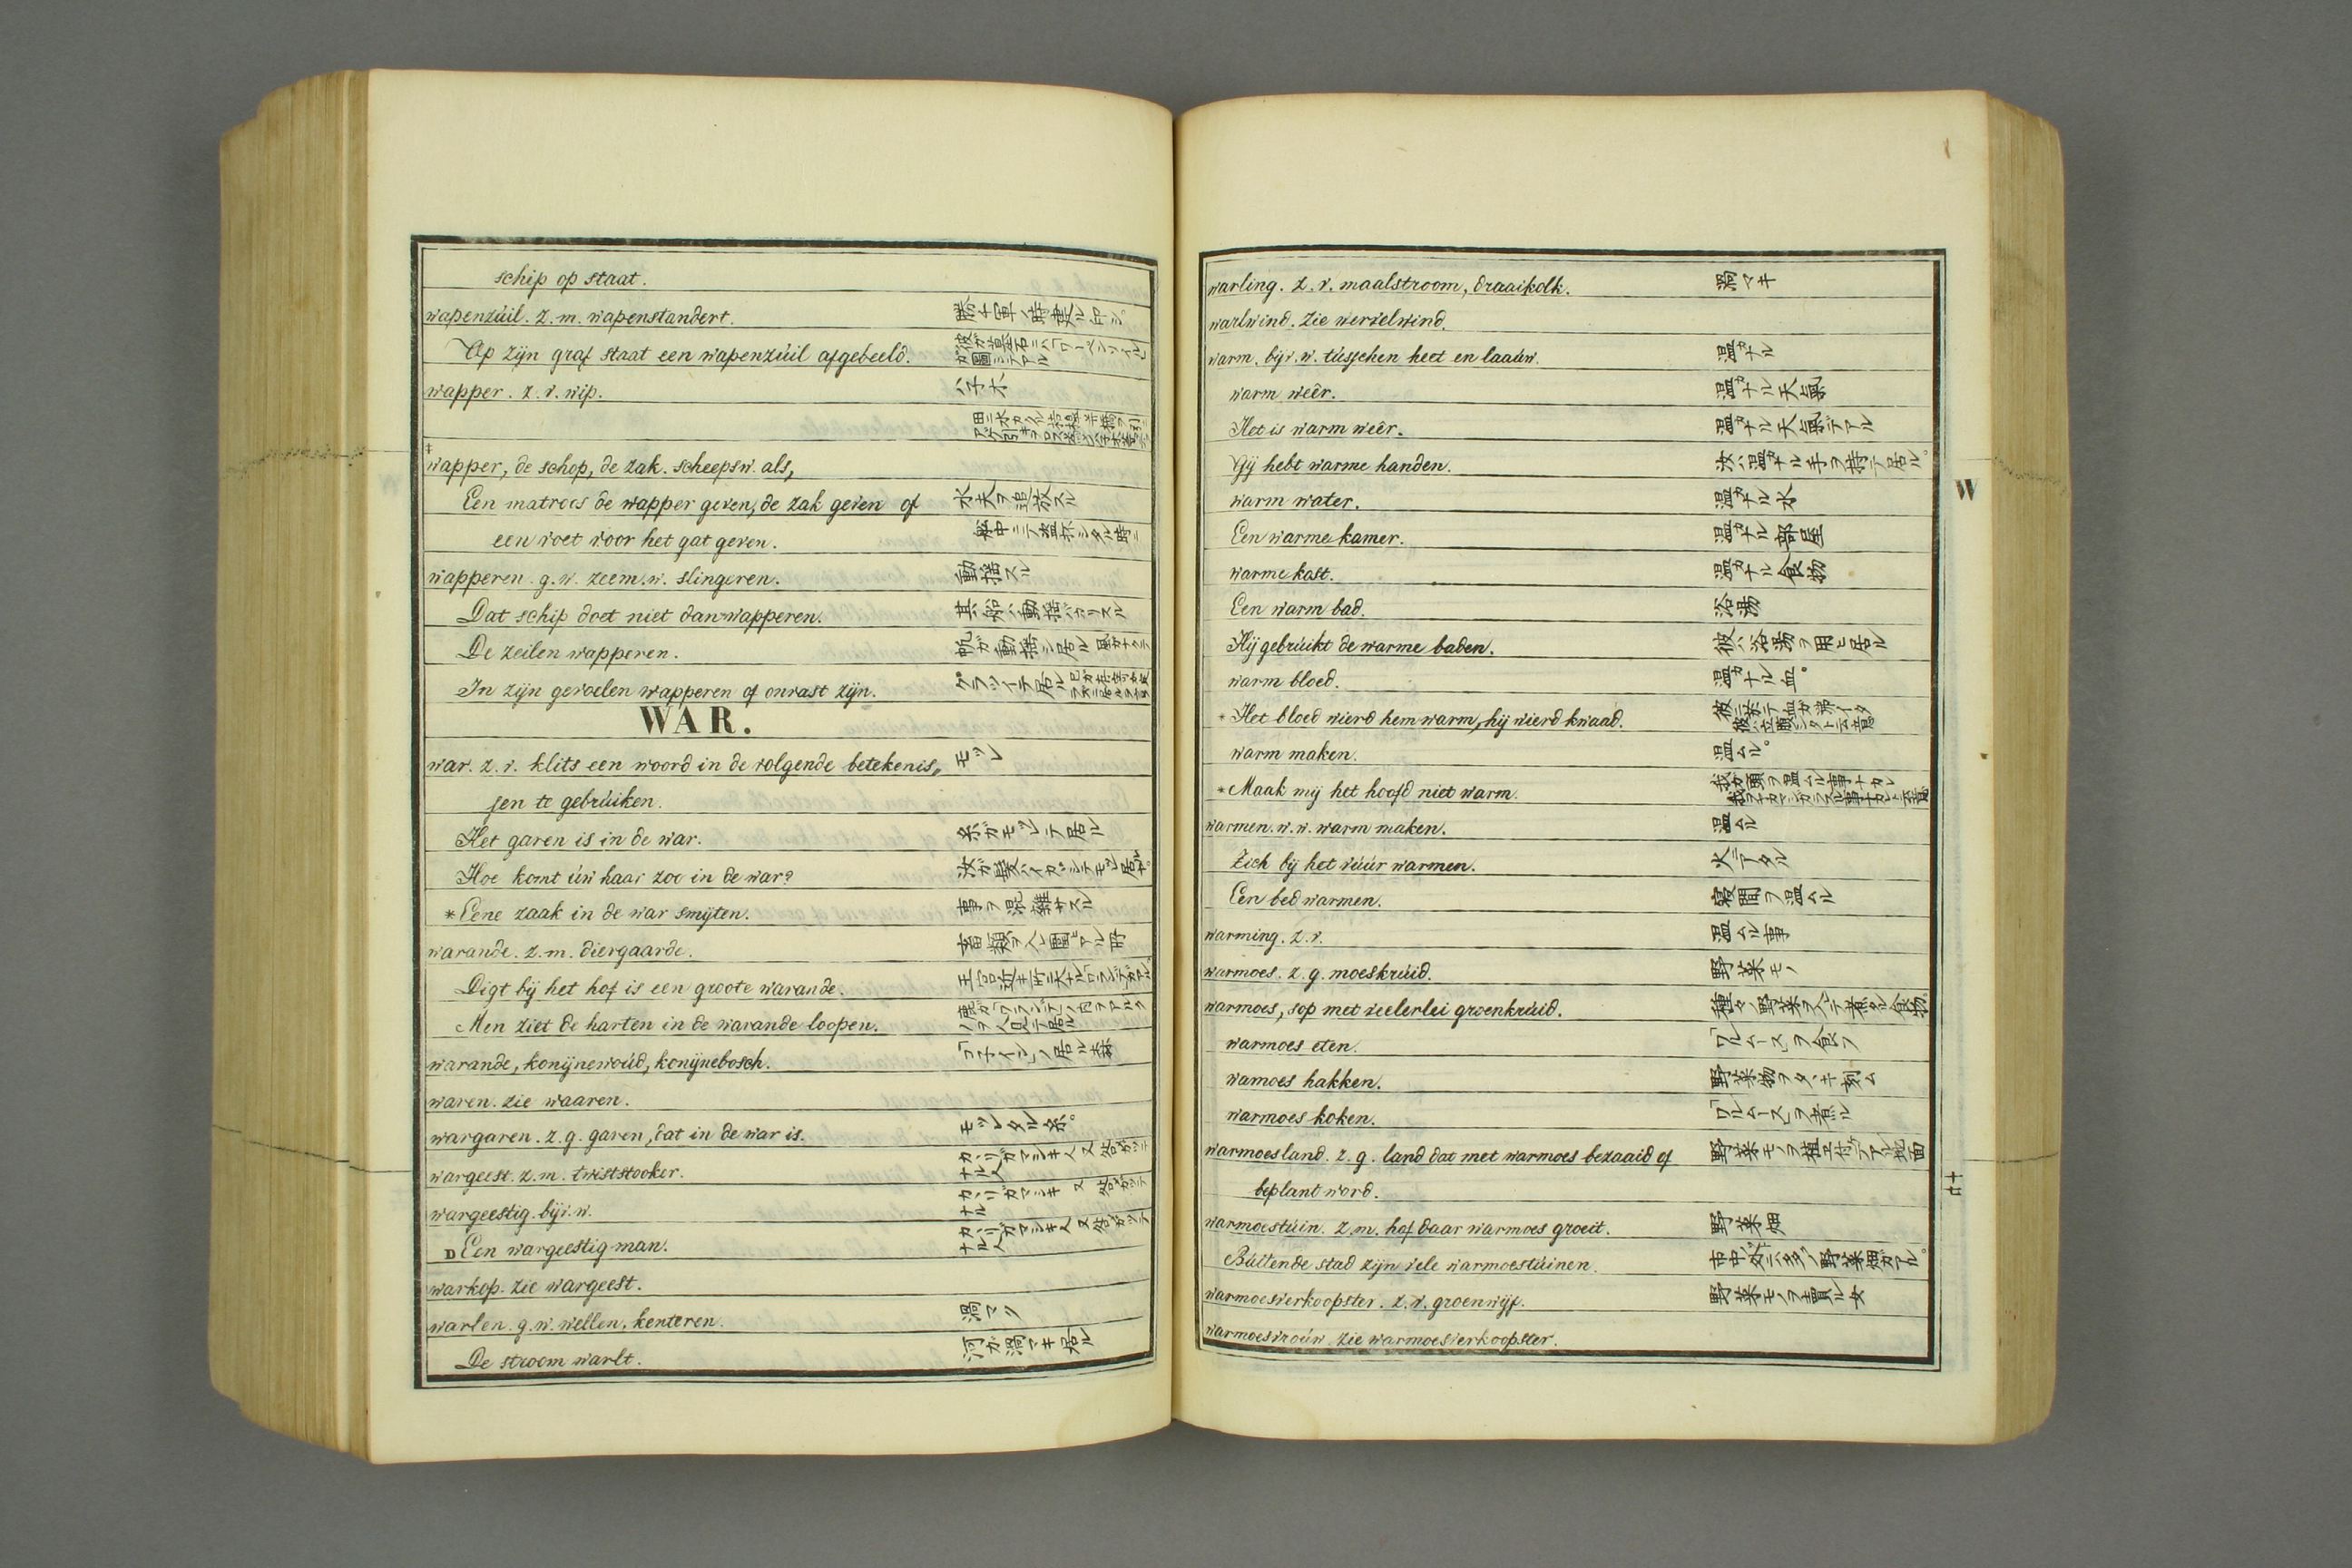 schip op staat.
wapenzúil. z.m. wapenstandert. 勝レ軍ノ時建ル印シ。
Op zijn graf staat een wapenzúil afgebeeld.
wapper. z.v. wip. ハ子木
wapper, de schop, de zak. scheepsw. als,
Een matroos de wapper geven, de zak geven of 水夫ヲ追放スル
een voet voor het gat geven.
wapperen. g.w. zeem.w. slingeren. 動揺スル
Dat schip doet niet dan wapperen. 其船ハ動揺バカリスル
De zeilen wapperen. 帆ガ動揺シ居ル
In zijn gevoelen wapperen of onvast zijn. グラツイテ居ル
WAR.
war. z.v. klits een woord in de volgende betekenis, モツレ
sen te gebrúiken.
Het garen is in de war. 糸ガモツレテ居ル
Hoe komt úw haar zoo in de war?
*Eene zaak in de war smijten. 事ヲ混雜サスル
warande. z.m. diergaarde. 畜類ヲ入レ圍テアル所
Digt bij het hof is een groote warande.
Men ziet de harten in de warande loopen.
warande, konijnewoúd, konijnebosch. 「コネイン」ノ居ル森
waren. zie waaren.
wargaren. z.g. garen, dat in de war is. モツレタル糸。
wargeest. z.m. twiststooker.
wargeestig. bijv.w.
D Een wargeestig man.
warkop. zie wargeest.
warlen. g.w. wellen, kenteren. 渦マク
De stroom warlt. 河ガ渦マキ居ル
warling. z.v. maalstroom, draaikolk. 渦マキ
warlwind. zie wervelwind.
warm. bijv.w. tússchen heet en laaúw. 温カナル
warm weêr. 温カナル天氣
Het is warm weêr. 温カナル天氣デアル
Gij hebt warme handen. 汝ハ温カナル手ヲ持テ居ル。
warm water. 温カナル水
Een warme kamer. 温カナル部屋
warme kost. 温カナル食物
Een warm bad. 浴湯
Hij gebrúikt de warme baden. 彼ハ浴湯ヲ用ヒ居ル
warm bloed. 温カナル血。
* Het bloed wierd hem warm, hij wierd kwaad.
warm maken. 温ムル。
* Maak mij het hoofd niet warm.
warmen. w.w. warm maken. 温ムル
Zich bij het vúúr warmen. 火ニアタル
Een bed warmen. 寝間ヲ温ムル
warming. z.v. 温ムル事
warmoes. z.g. moeskrúid. 野菜モノ
warmoes, sop met veelerlei groenkrúid. 種々ノ野菜ヲ入レテ煮タル食物。
warmoes eten. 「ワルムース」ヲ食フ
wamoes hakken. 野菜物ヲタヽキ刻ム
warmoes koken. 「ワルムース」ヲ煮ル
warmoesland. z.g. land dat met warmoes bezaaid of 野菜モノヲ植エ付ケテアル地面
beplant word.
warmoestúin. z.m. hof daar warmoes groeit. 野菜畑
Búitende stad zijn vele warmoestúinen.
warmoesverkoopster. z.v. groenwijf. 野菜モノヲ賣ル女
warmoesvroúw. zie warmoesverkoopster.
W